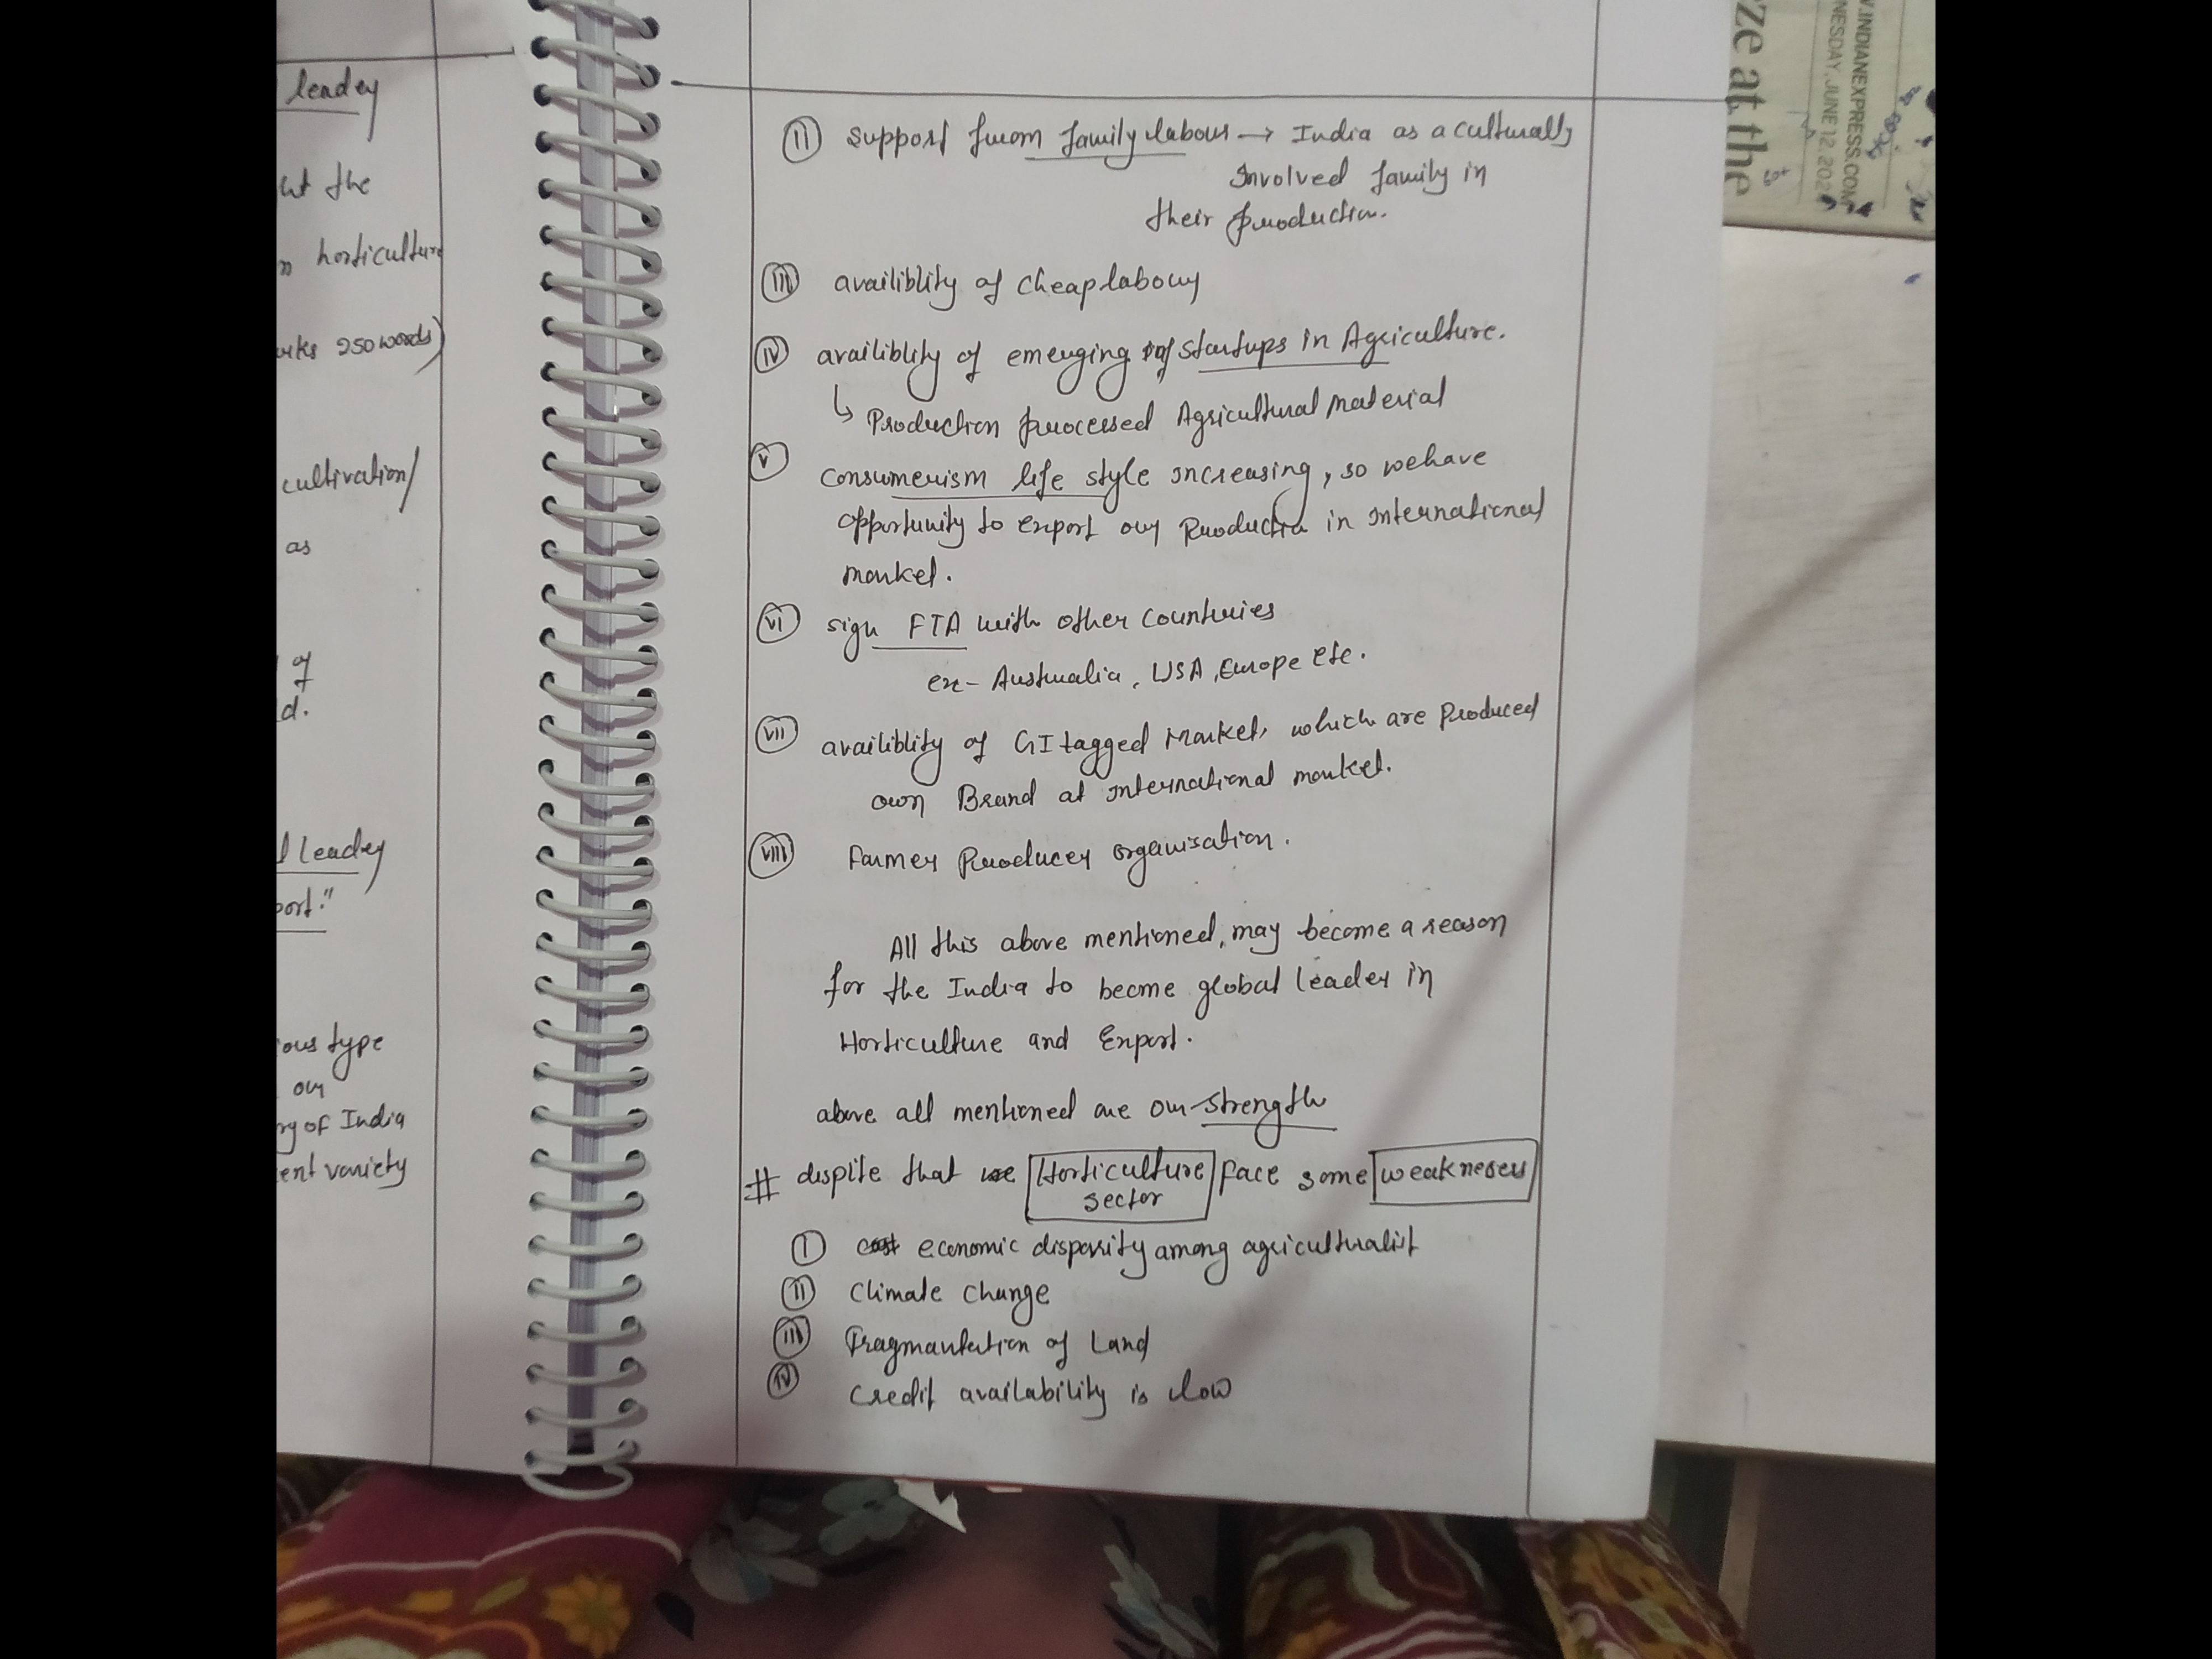 leader
ht the
n horticulture
rks 250 words)
cultivation/
as
of
d.
l leader
port."
ious type
our
ry of India
ent variety
II support from family labour → India as a culturally
Involved family in
their production.
III availiblity of cheap labour
IV availiblity of emerging of startups in Agriculture.
↳ Production processed Agricultural Material
V consumerism life style increasing, so we have
opportunity to export our Production in International
market.
VI sign FTA with other countries
ex- Australia, USA, Europe etc.
VII availiblity of GI tagged Market, which are produced
own Brand at International market.
VIII Farmer Producer organisation.
All this above mentioned, may become a reason
for the India to become global leader in
Horticulture and Export.
above all mentioned are our strength
# dispite that we Horticulture face some weakneses
sector
I cost economic disparity among agriculturalist
II Climate change
III Fragmantation of Land
IV Credit availability is low
ze at the
W.INDIANEXPRESS.COM
NESDAY, JUNE 12, 202